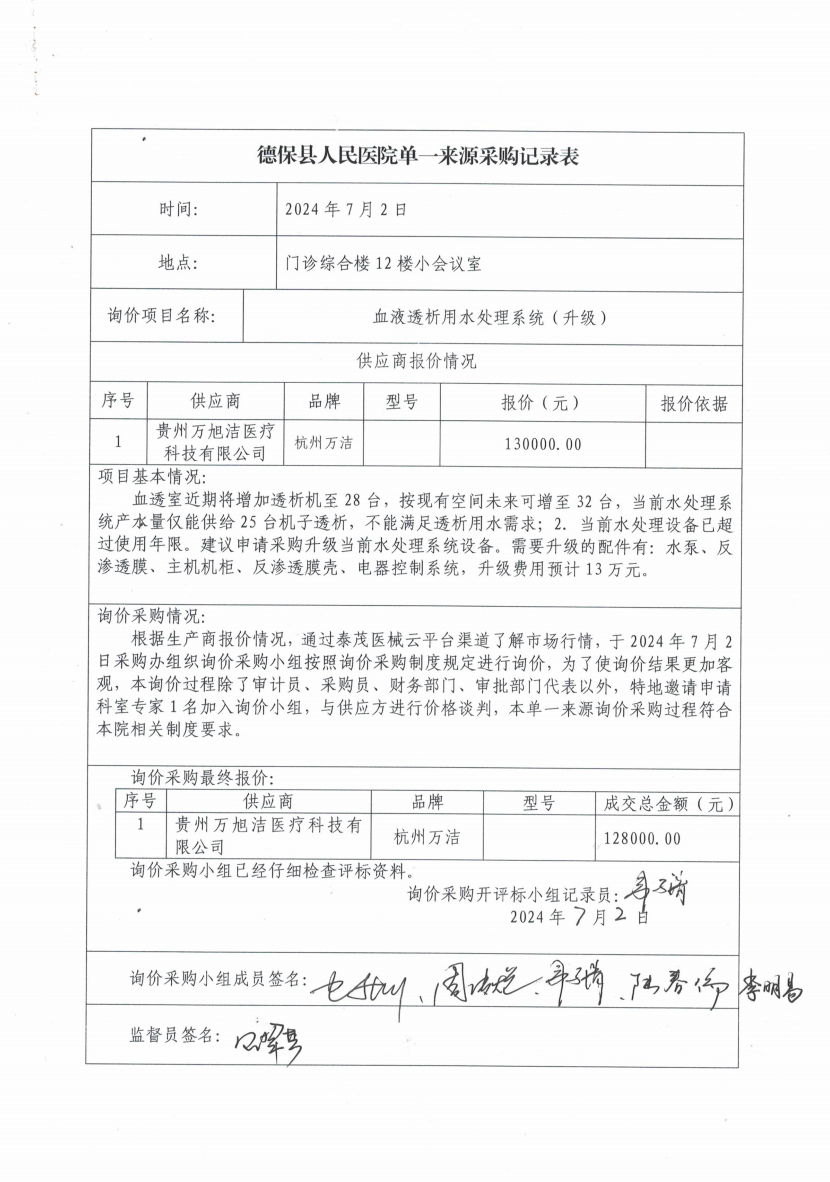 德保县人民医院单一来源采购记录表
时间： 2024 年 7 月 2 日
地点： 门诊综合楼 12 楼小会议室
询价项目名称： 血液透析用水处理系统（升级）
供应商报价情况
序号 供应商 品牌 型号 报价（元） 报价依据
1 贵州万旭洁医疗科技有限公司 杭州万洁 130000.00
项目基本情况：
血透室近期将增加透析机至 28 台，按现有空间未来可增至 32 台，当前水处理系
统产水量仅能供给 25 台机子透析，不能满足透析用水需求；2．当前水处理设备已超
过使用年限。建议申请采购升级当前水处理系统设备。需要升级的配件有：水泵、反
渗透膜、主机机柜、反渗透膜壳、电器控制系统，升级费用预计 13 万元。
询价采购情况：
根据生产商报价情况，通过泰茂医械云平台渠道了解市场行情，于 2024 年 7 月 2
日采购办组织询价采购小组按照询价采购制度规定进行询价，为了使询价结果更加客
观，本询价过程除了审计员、采购员、财务部门、审批部门代表以外，特地邀请申请
科室专家 1 名加入询价小组，与供应方进行价格谈判，本单一来源询价采购过程符合
本院相关制度要求。
询价采购最终报价：
序号 供应商 品牌 型号 成交总金额（元）
1 贵州万旭洁医疗科技有限公司 杭州万洁 128000.00
询价采购小组已经仔细检查评标资料。
询价采购开评标小组记录员：
2024 年 7 月 2 日
询价采购小组成员签名： 李明昌
监督员签名：